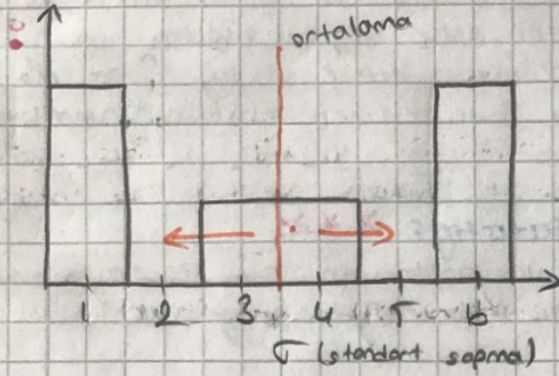 c
ortalama
1 2 3 4 5 6
σ (standart sapma)